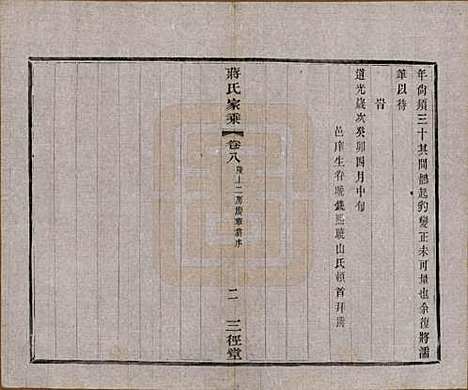 年尚須三十其間鵬起豹變正未可量也余復將濡
筆以待
旹
道光歲次癸卯四月中旬
邑庠生眷晚錢熙 山氏頓首拜
蔣氏家乘
卷八
二
三徑堂